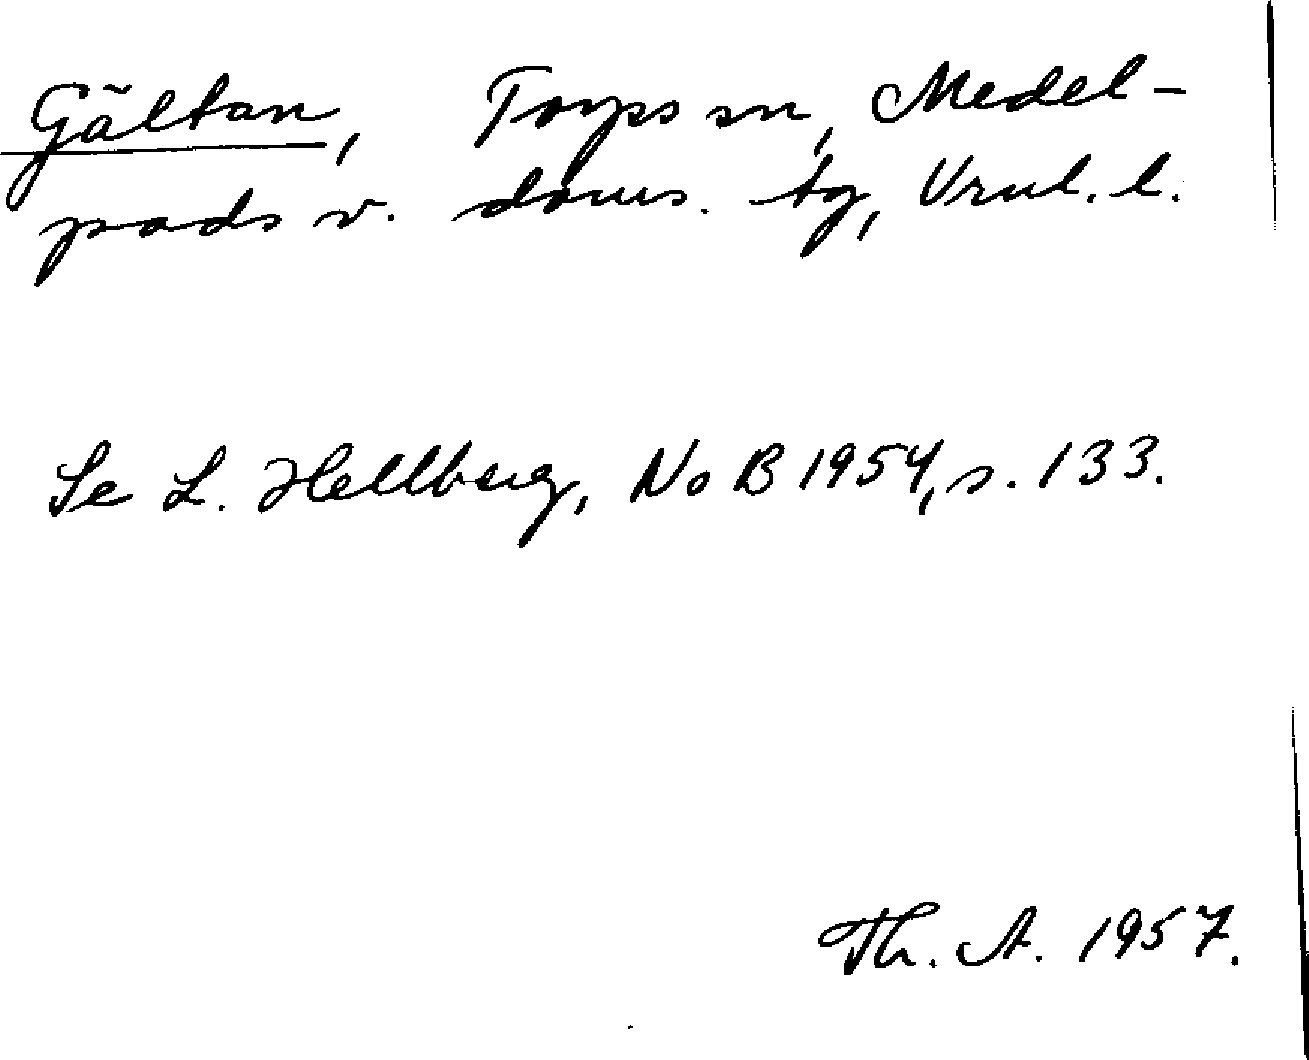 Gältan, Torps sn, Medel-
pads v. doms. tg, Vrnl. l.
Se L. Hellberg, NoB 1954, s. 133.
Th. A. 1957.